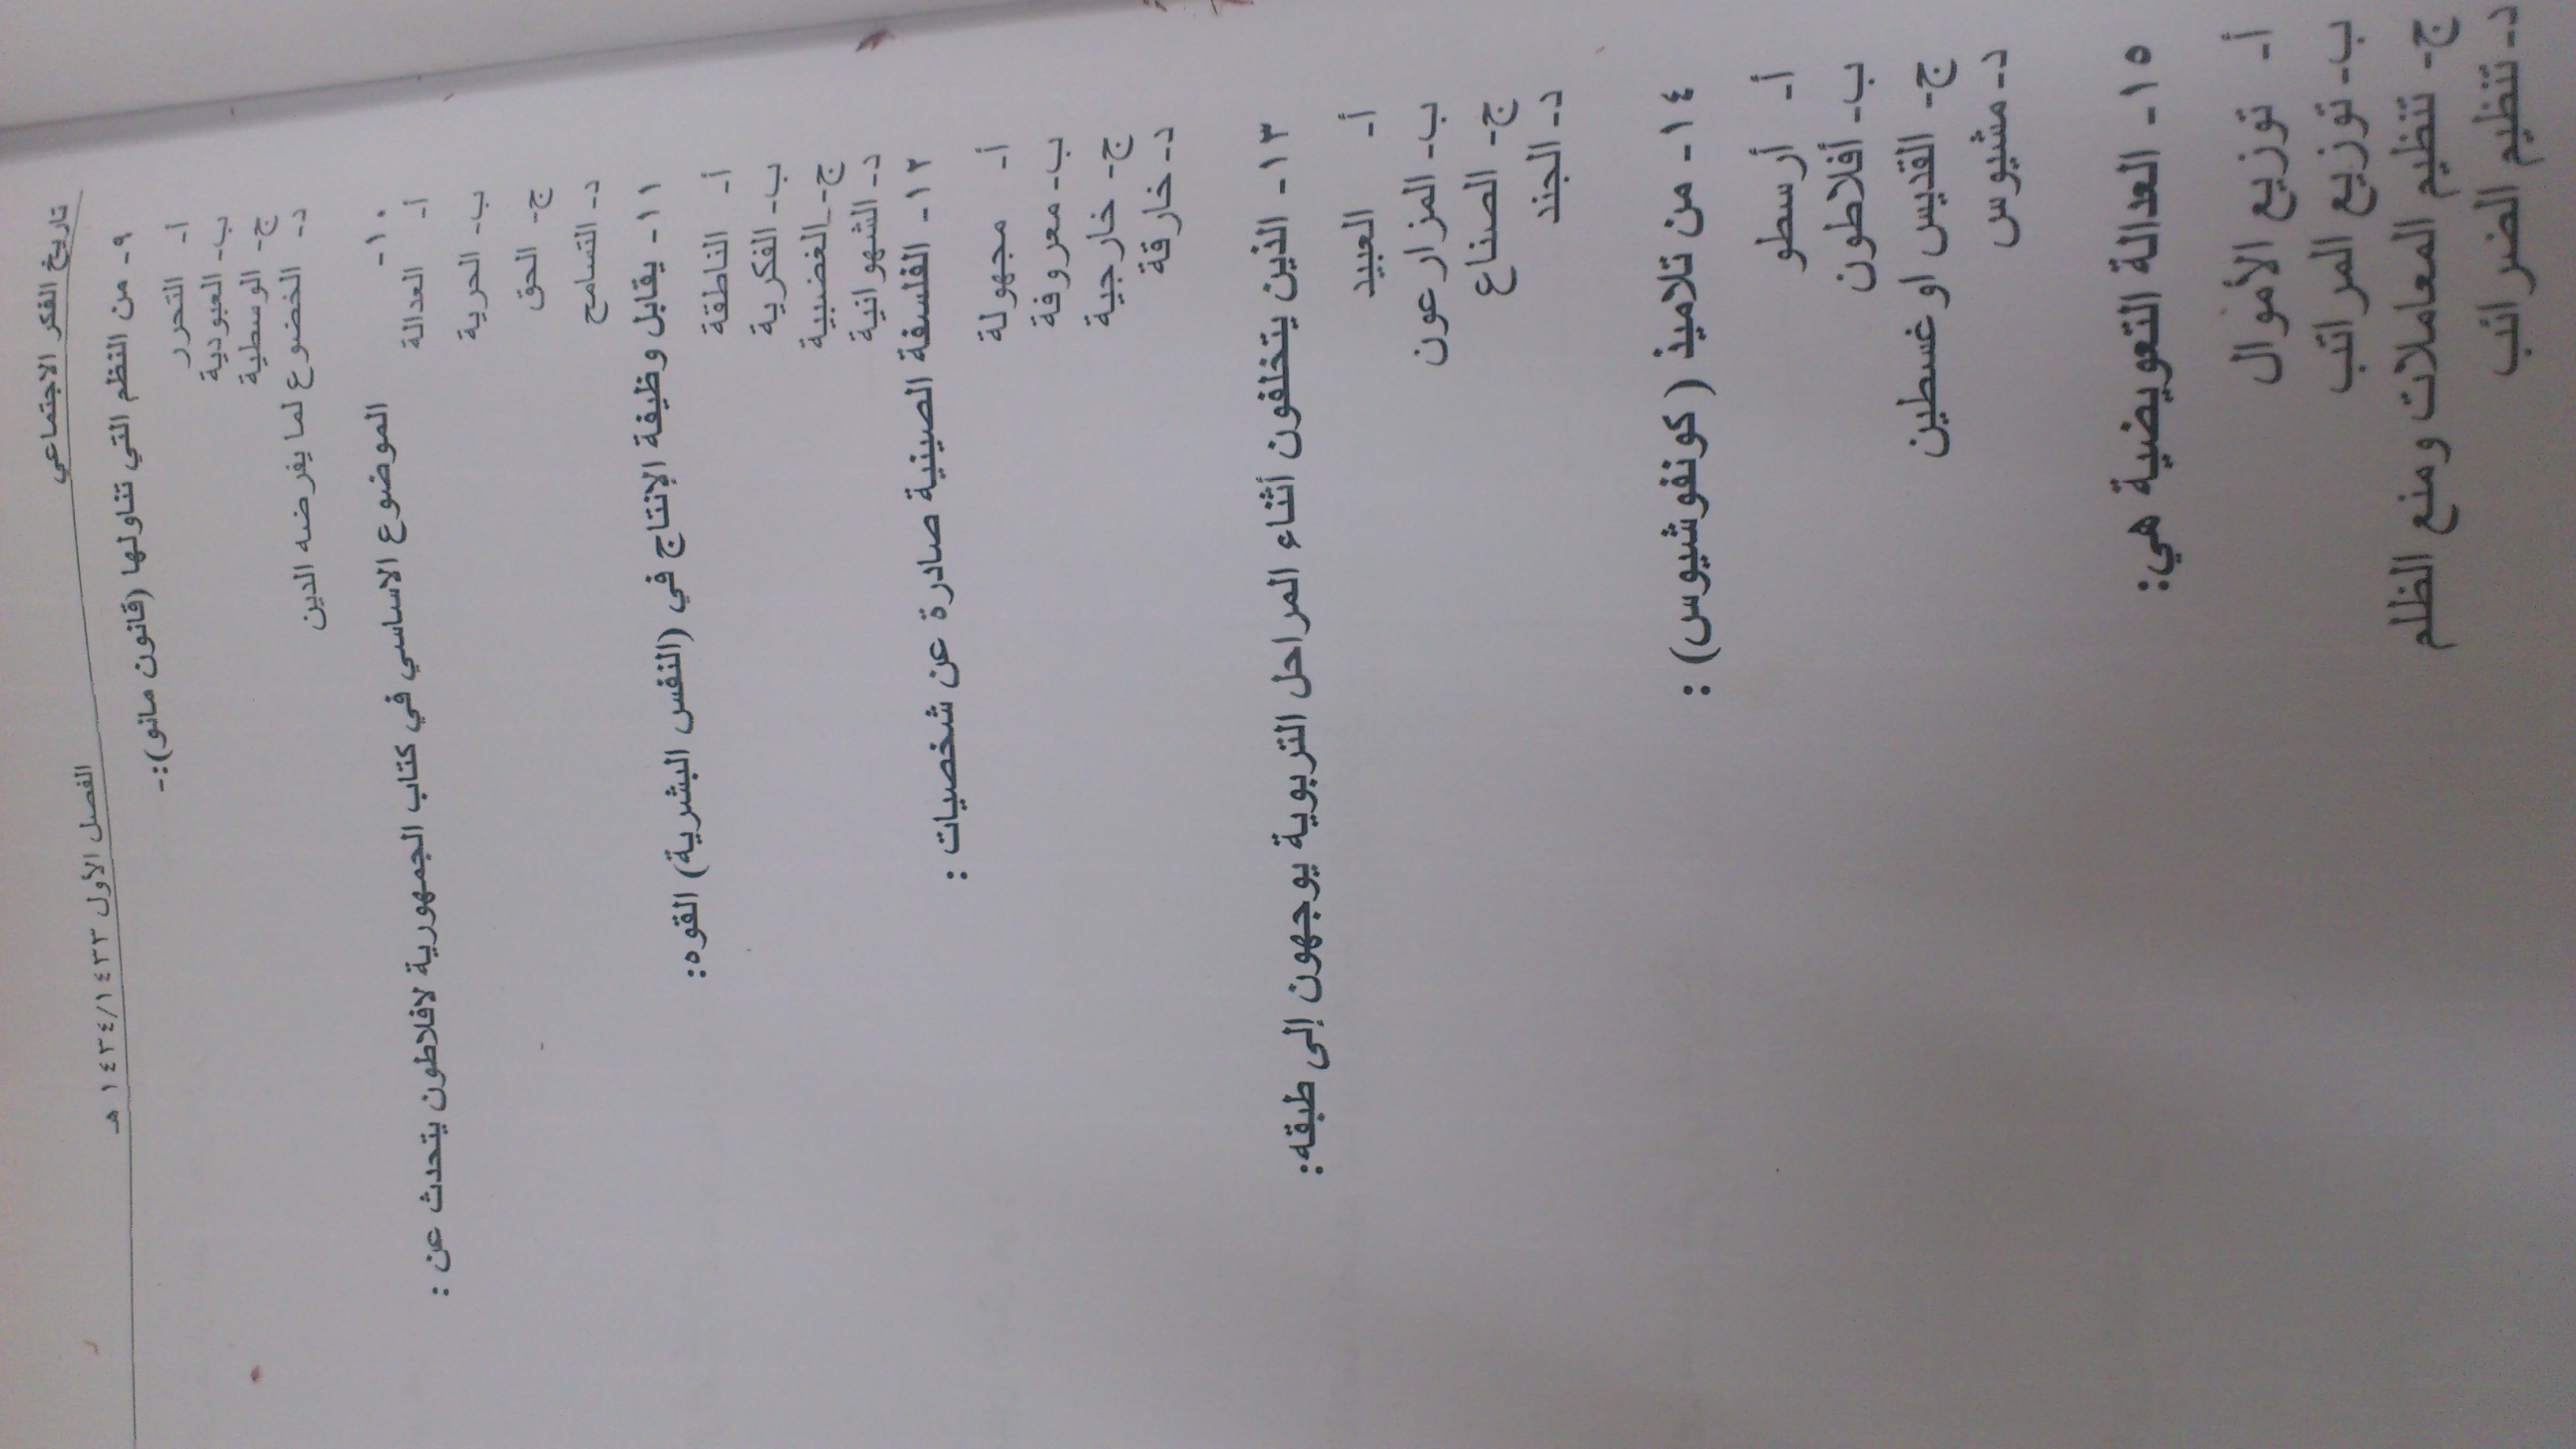 تاريخ الفكر الاجتماعي
الفصل الأول ١٤٣٤/١٤٣٣ هـ
٩- من النظم التي تناولها (قانون مانو):-
أ- التحرر
ب- العبودية
ج- الوسطية
د- الخضوع لما يفرضه الدين
١٠- الموضوع الاساسي في كتاب الجمهورية لافلاطون يتحدث عن :
أ- العدالة
ب- الحرية
ج- الحق
د- التسامح
١١- يقابل وظيفة الإنتاج في (النفس البشرية) القوه:
أ- الناطقة
ب- الفكرية
ج- الغضبية
د- الشهوانية
١٢- الفلسفة الصينية صادرة عن شخصيات :
أ- مجهولة
ب- معروفة
ج- خارجية
د- خارقة
١٣- الذين يتخلفون أثناء المراحل التربوية يوجهون إلى طبقه:
أ- العبيد
ب- المزارعون
ج- الصناع
د- الجند
١٤- من تلاميذ ( كونفوشيوس) :
أ- أرسطو
ب- أفلاطون
ج- القديس او غسطين
د- مشيوس
١٥- العدالة التعويضية هي:
أ- توزيع الأموال
ب- توزيع المراتب
ج- تنظيم المعاملات ومنع الظلم
د- تنظيم الضرائب